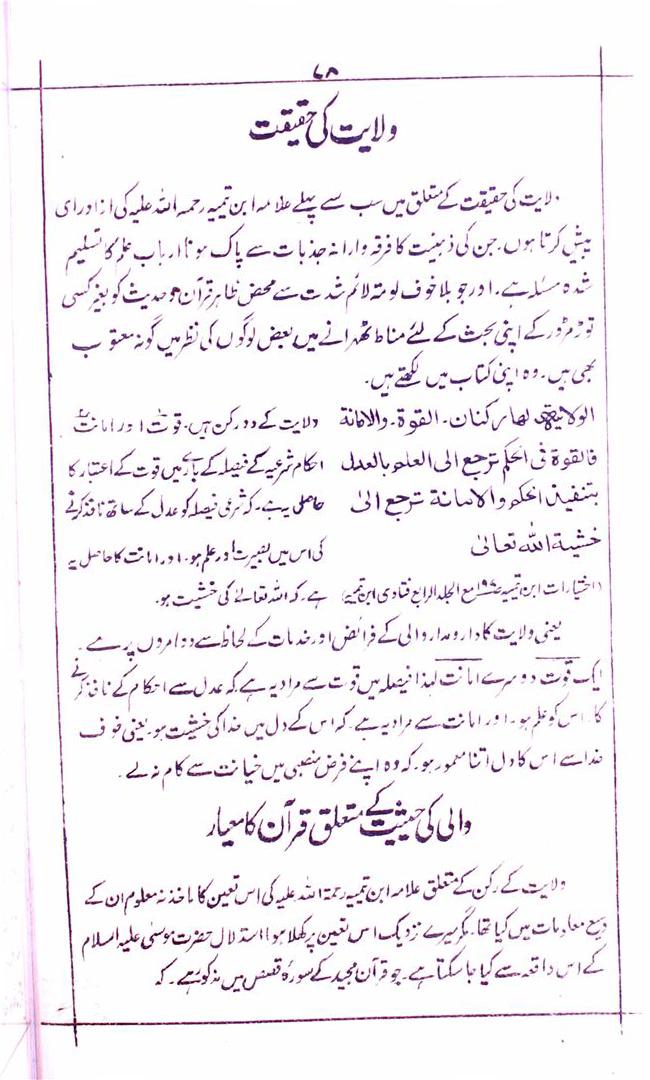 ۷۸
ولایت کی حقیقت
ولایت کی حقیقت کے متعلق میں سب سے پہلے علامہ ابن تیمیہ رحمہ اللہ علیہ کی آزاد رای
پیش کرتا ہوں۔ جن کی ذہنیت کا فرقہ وارانہ جذبات سے پاک ہونا ارباب علم کا تسلیم
شدہ مسئلہ ہے۔ اور جو بلا خوف لومۃ لائم شدت سے محض ظاہر قرآن و حدیث کو بغیر کسی
توڑ مڑوڑ کے اپنی بحث کے لئے مناط ٹھہرانے میں بعض لوگوں کی نظر میں گونہ معتوب
بھی ہیں۔ وہ اپنی کتاب میں لکھتے ہیں۔
الولایۃ لھا رکنان۔ القوۃ۔ والامانۃ
فالقوۃ فی الحکم ترجع الی العلم بالعدل
بتنفیذ الحکم والامانۃ ترجع الیٰ
خشیۃ اللہ تعالیٰ
(اختیارات ابن تیمیہ مع الجلد الرابع فتاوی ابن تیمیہ)
ولایت کے دو رکن ہیں۔ قوت اور امانت
احکام شرعیہ کے فیصلہ کے بارے میں قوت کے اعتبار کا
حاصل یہ ہے۔ کہ شرعی فیصلہ کو عدل کے ساتھ نافذ کرنے
کی اس میں بصیرت اور علم ہو۔ اور امانت کا حاصل یہ
ہے۔ کہ اللہ تعالےٰ کی خشیت ہو۔
یعنی ولایت کا دار و مدار والی کے فرائض اور خدمات کے لحاظ سے دو امروں پر ہے۔
ایک قوت دوسرے امانت لہذا فیصلہ میں قوت سے مراد یہ ہے کہ عدل سے احکام کے نافذ کرنے
کا۔ اس کو علم ہو۔ اور امانت سے مراد یہ ہے۔ کہ اس کے دل میں خدا کی خشیت ہو۔ یعنی خوف
خدا سے اس کا دل اتنا معمور ہو۔ کہ وہ اپنے فرض منصبی میں خیانت سے کام نہ لے۔
والی کی حیثیت کے متعلق قرآن کا معیار
ولایت کے رکن کے متعلق علامہ ابن تیمیہ رحمۃ اللہ علیہ کی اس تعین کا ماخذ نہ معلوم ان کے
وسیع معلومات میں کیا تھا۔ مگر میرے نزدیک اس تعین پر کھلا ہوا استدلال حضرت موسیٰ علیہ السلام
کے اس واقعہ سے کیا جا سکتا ہے۔ جو قرآن مجید کے سورۃ قصص میں مذکور ہے۔ کہ